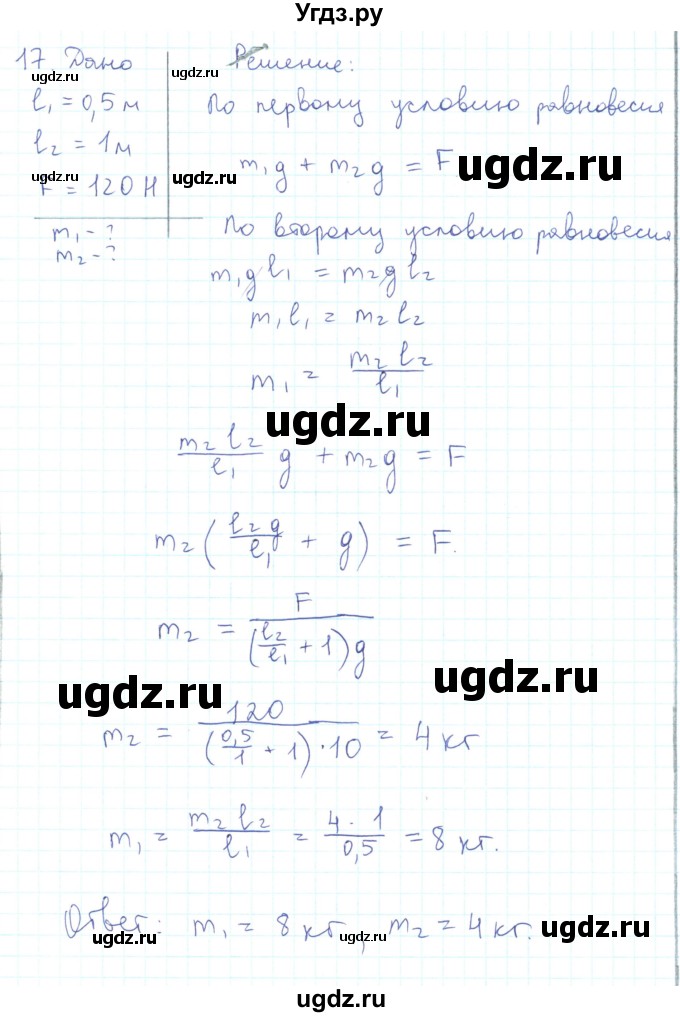 Угдз.ру
17 Дано
ugdz.ru
l₁ = 0,5 м
l₂ = 1 м
ugdz.ru
F = 120 Н
m₁ - ?
m₂ - ?
Решение:
ugdz.ru
По первому условию равновесия
m₁g + m₂g = F
ugdz.ru
ugdz.ru
По второму условию равновесия
m₁gl₁ = m₂gl₂
m₁l₁ = m₂l₂
m₁ = m₂l₂/l₁
ugdz.ru
m₂l₂/l₁ g + m₂g = F
m₂(l₂g/l₁ + g) = F.
m₂ = F/((l₂/l₁ + 1)g
ugdz.ru
ugdz.ru
m₂ = 120/((0,5/1 + 1)·10 = 4 кг
m₁ = m₂l₂/l₁ = 4·1/0,5 = 8 кг.
Ответ: m₁ = 8 кг, m₂ = 4 кг.
ugdz.ru
ugdz.ru
ugdz.ru
ugdz.ru